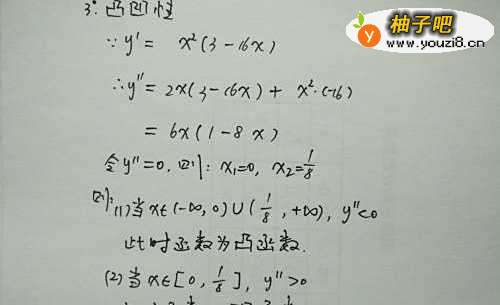 3° 凸凹性
柚子吧
www.youzi8.cn
∵ y' = x²(3-16x)
∴ y'' = 2x(3-16x) + x²·(-16)
= 6x(1-8x)
令y''=0, 则: x₁=0, x₂=1/8
则: (1) 当x∈(-∞, 0)∪(1/8, +∞), y''<0
此时函数为凸函数.
(2) 当x∈[0, 1/8], y''>0